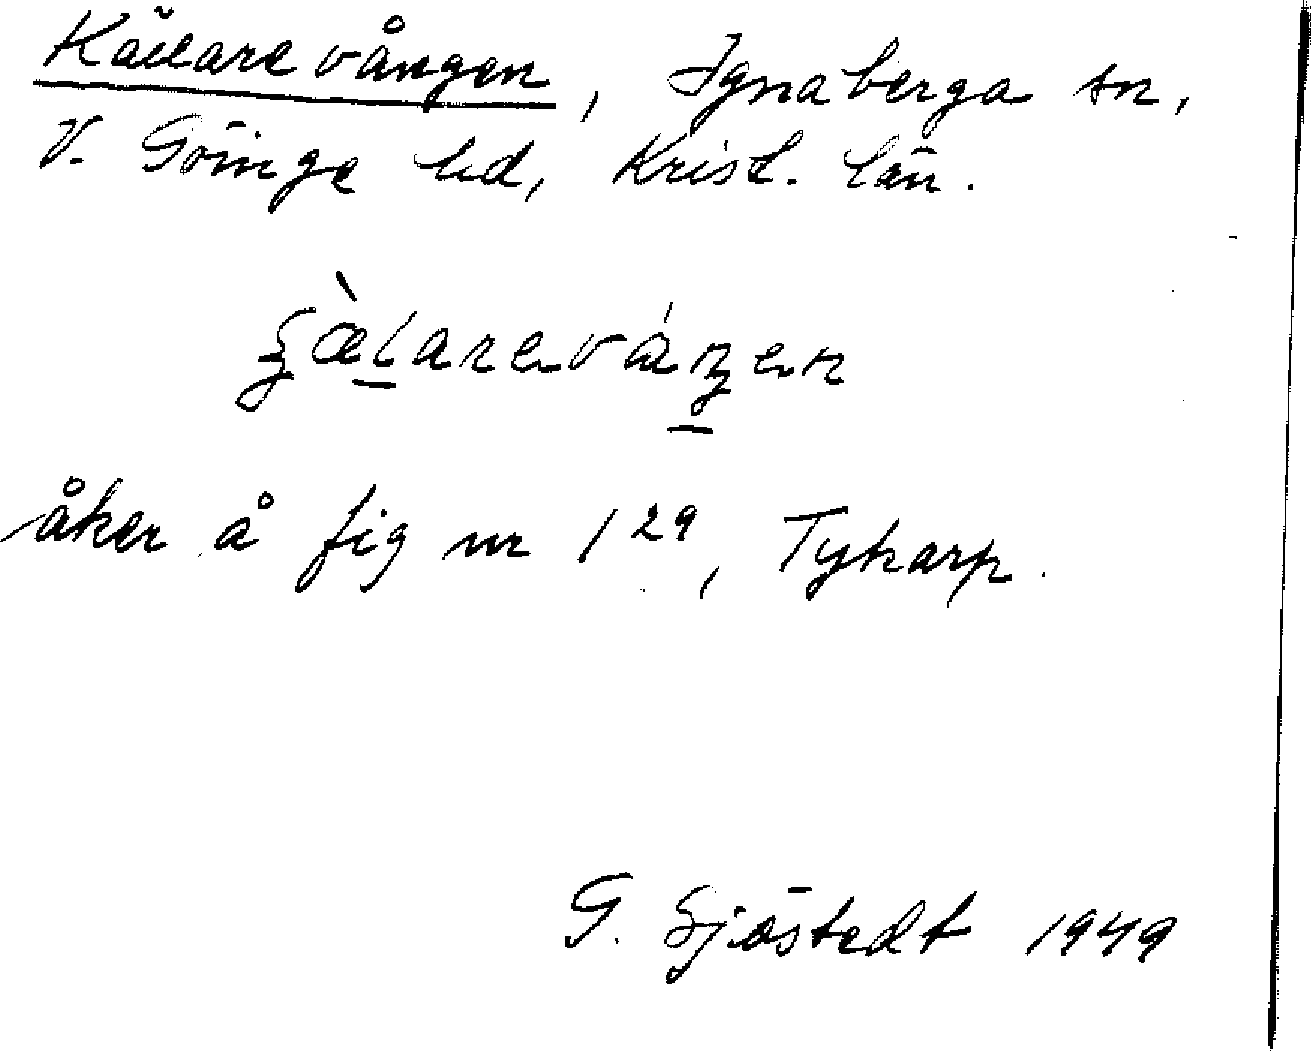 Källarevången, Ignaberga sn,
V. Göinge hd, Krist. län.
åker å fig nr 1²⁹, Tykarp.
G. Sjöstedt 1949